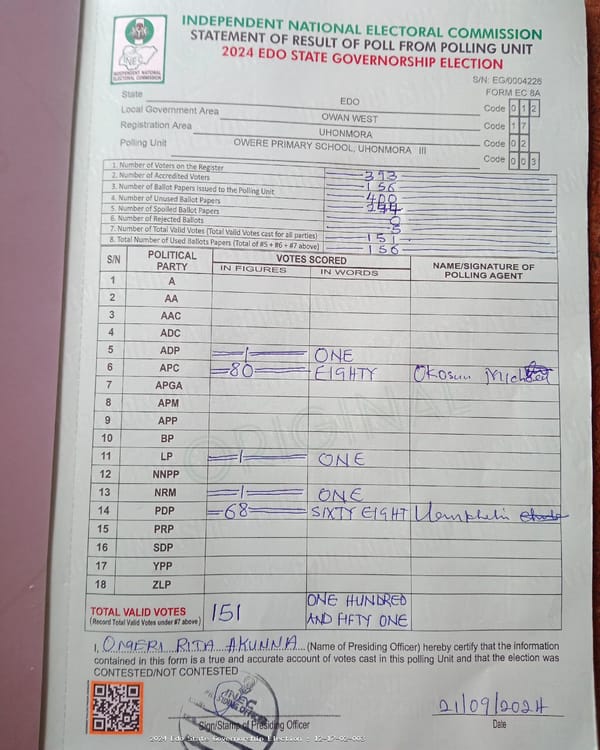 INDEPENDENT NATIONAL ELECTORAL COMMISSION
STATEMENT OF RESULT OF POLL FROM POLLING UNIT
2024 EDO STATE GOVERNORSHIP ELECTION
INEC
INDEPENDENT NATIONAL ELECTORAL COMMISSION
S/N: EG/0004226
FORM EC 8A
State EDO Code 0 1 2
Local Government Area OWAN WEST Code 1 7
Registration Area UHONMORA Code 0 2
Polling Unit OWERE PRIMARY SCHOOL, UHONMORA III Code 0 0 3
1. Number of Voters on the Register 393
2. Number of Accredited Voters 156
3. Number of Ballot Papers Issued to the Polling Unit 400
4. Number of Unused Ballot Papers 244
5. Number of Spoiled Ballot Papers 0
6. Number of Rejected Ballots 5
7. Number of Total Valid Votes (Total Valid Votes cast for all parties) 151
8. Total Number of Used Ballots Papers (Total of #5 + #6 + #7 above) 156
S/N POLITICAL PARTY VOTES SCORED NAME/SIGNATURE OF POLLING AGENT
IN FIGURES IN WORDS
1 A
2 AA
3 AAC
4 ADC
5 ADP 1 ONE
6 APC 80 EIGHTY Okosun
7 APGA
8 APM
9 APP
10 BP
11 LP 1 ONE
12 NNPP
13 NRM 1 ONE
14 PDP 68 SIXTY EIGHT
15 PRP
16 SDP
17 YPP
18 ZLP
ORIGINAL
TOTAL VALID VOTES 151 ONE HUNDRED
(Record Total Valid Votes under #7 above) AND FIFTY ONE
I, OMERI RITA AKUNNA (Name of Presiding Officer) hereby certify that the information
contained in this form is a true and accurate account of votes cast in this polling Unit and that the election was
CONTESTED/NOT CONTESTED
INEC
21/09/2024
Sign/Stamp of Presiding Officer Date
2024 Edo State Governorship Election : 12-17-02-003